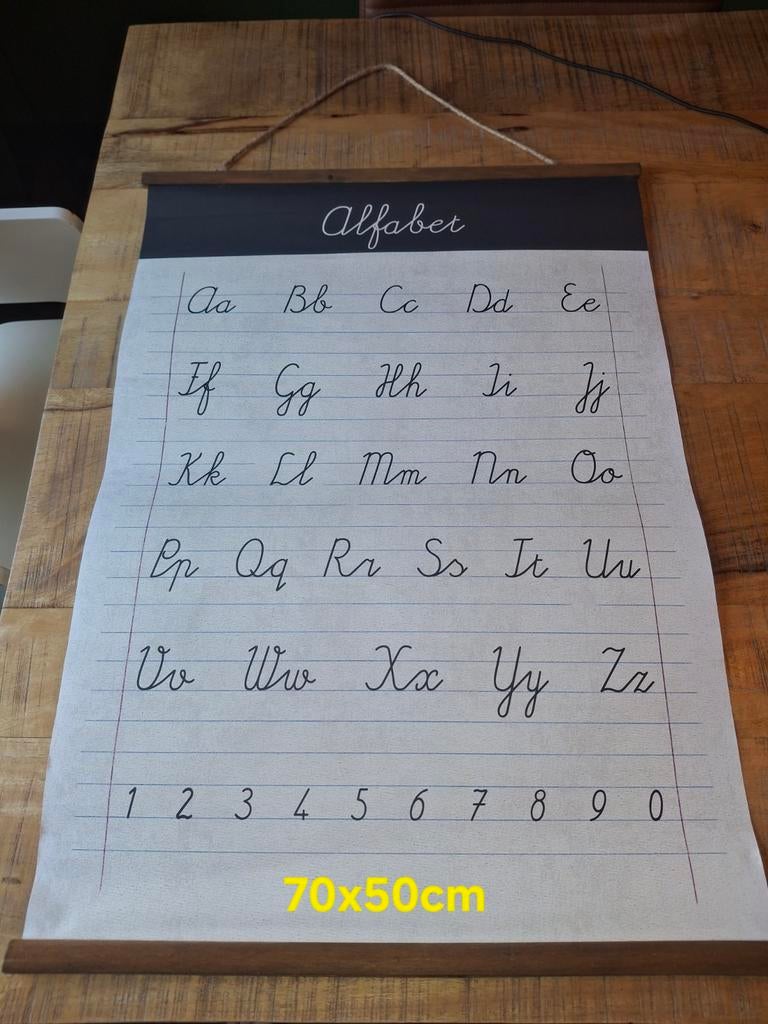 Alfabet
Aa Bb Cc Dd Ee
Ff Gg Hh Ii Jj
Kk Ll Mm Nn Oo
Pp Qq Rr Ss Tt Uu
Vv Ww Xx Yy Zz
1 2 3 4 5 6 7 8 9 0
70x50cm